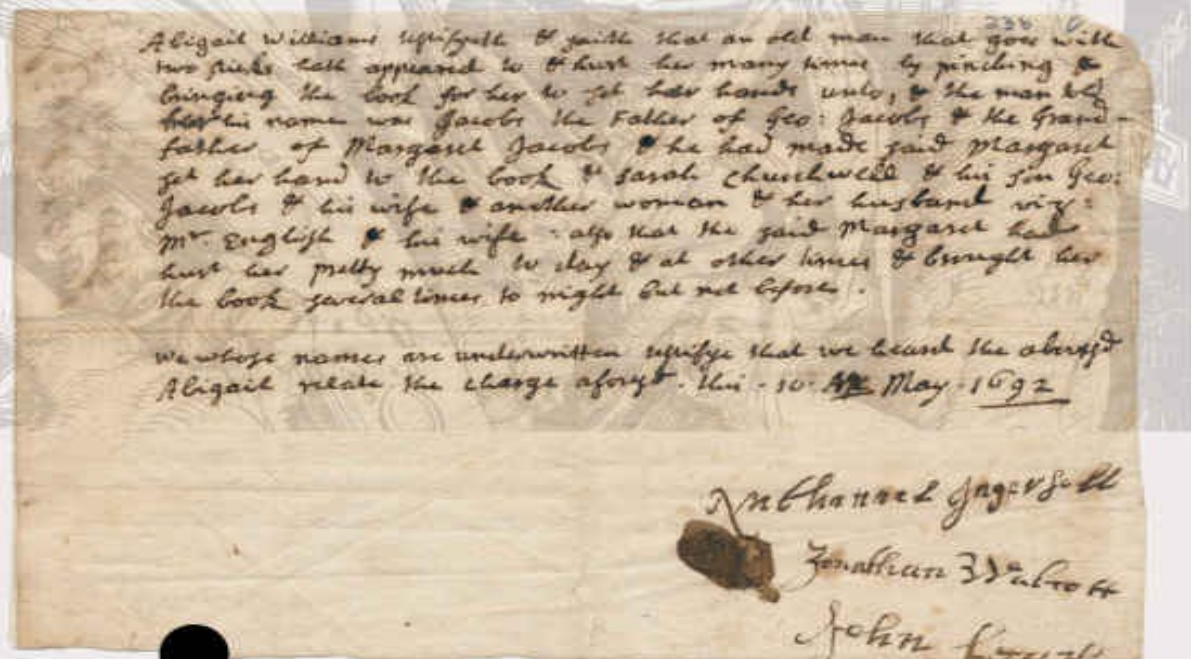 238
Abigail Williams testifyeth & saith that an old man that goes with
two sticks hath appeared to & hurt her many times by pinching &
bringing the book for her to set her hand unto, & the man told
her his name was Jacobs the Father of Geo: Jacobs & the Grand-
father of Margaret Jacobs & he had made said Margaret
set her hand to the book & Sarah Churchwell & his son Geo:
Jacobs & his wife & another woman & her husband viz:
Mr. English & his wife: also that the said Margaret had
hurt her pretty much to day & at other times & brought her
the book several times to night but not before.
we whose names are underwritten testifye that we heard the abovesd
Abigail relate the charge aforesd. this - 10. May - 1692
Nathanael Ingersoll
Jonathan Walcott
John